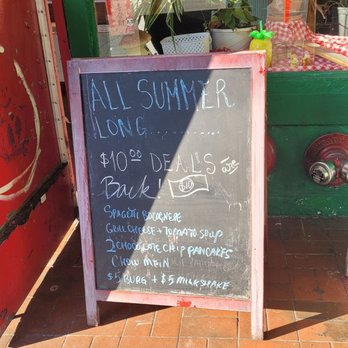 ALL SUMMER
LONG..............
$10.00 DEAL'S
Back! $10
SPAGETTI BOLOGNESE
GRILL CHEESE + TOMATO SOUP
2 CHOCOLATE CHIP PANCAKES
CHOW MEIN
$5 BURG + $5 MILKSHAKE